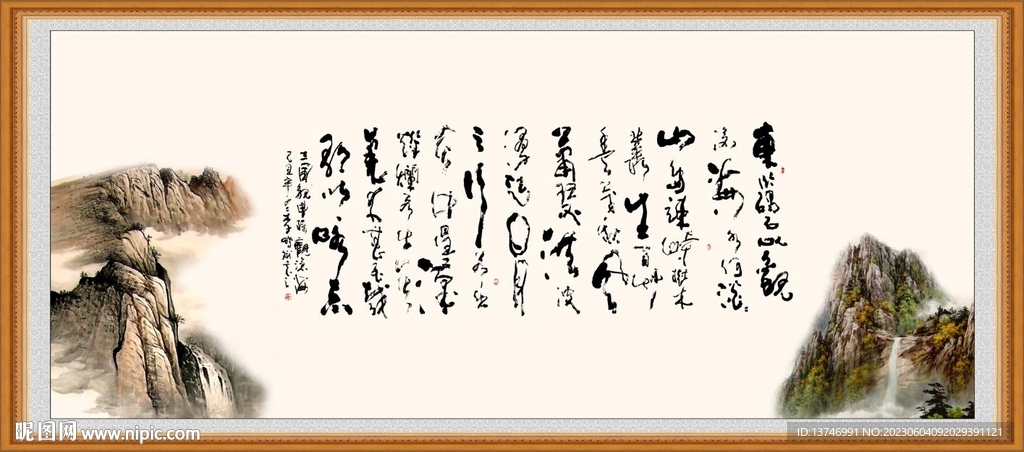 東臨碣石以觀
滄海水何澹〻
山島竦峙樹木
叢生百草
豐茂秋風
蕭瑟洪波
湧起日月
之行若出
其中星漢
燦爛若出其
裏幸甚至哉
歌以詠志
三國魏曹操觀滄海
己丑年
昵图网 www.nipic.com
ID:13746991 NO:20230604092029391121